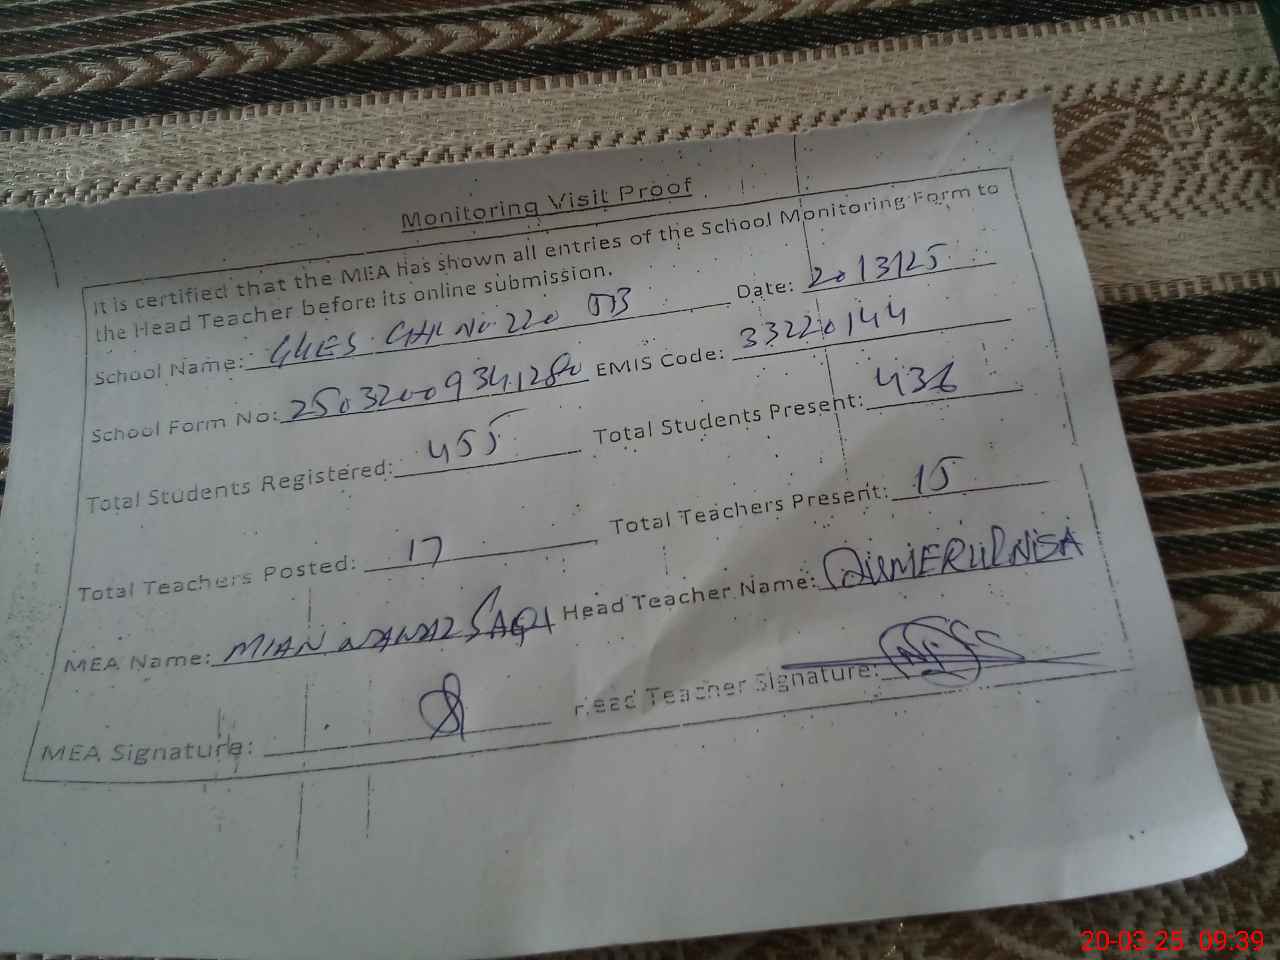 Monitoring Visit Proof
It is certified that the MEA has shown all entries of the School Monitoring Form to
the Head Teacher before its online submission.
School Name: GGES CHK No 220 JB Date: 20/3/25
School Form No: 25032009341280 EMIS Code: 33220144
Total Students Registered: 455 Total Students Present: 436
Total Teachers Posted: 17 Total Teachers Present: 15
MEA Name: MIAN NAWAZ SAQI Head Teacher Name: QUMERULNISA
MEA Signature: Head Teacher Signature:
20-03-25 09:39